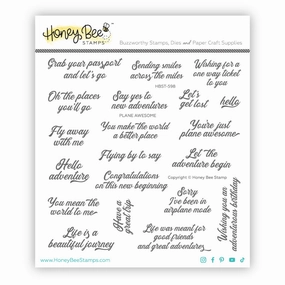 Honey Bee
STAMPS
Buzzworthy Stamps, Dies and Paper Craft Supplies
Grab your passport
and let's go
Sending smiles
across the miles
Wishing for a
one way ticket
to you
Oh the places
you'll go
Say yes to
new adventures
Let's
get lost
hello
HBST-598
PLANE AWESOME
Fly away
with me
You make the world
a better place
You're just
plane awesome
Hello
adventure
Flying by to say
Let the
adventure begin
Congratulations
on this new beginning
Copyright © Honey Bee Stamps
You mean the
world to me
Have a
great trip
Sorry
I've been in
airplane mode
Wishing you an
adventurous birthday
Life is a
beautiful journey
Life was meant for
good friends
and great adventures
www.HoneyBeeStamps.com